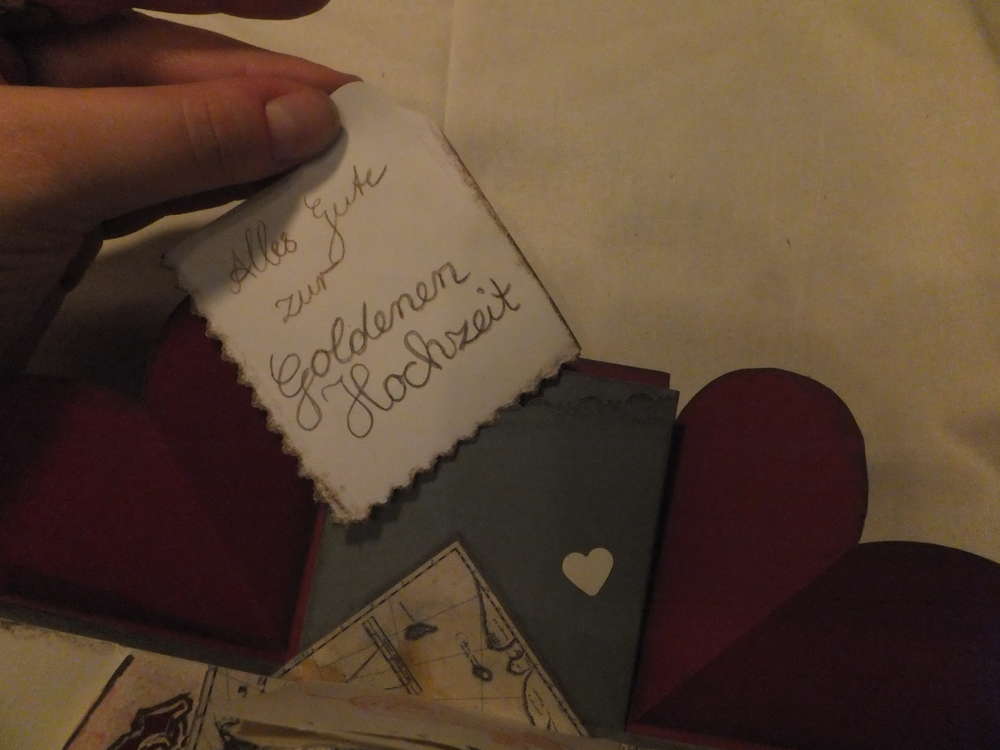 Alles Gute
zur
Goldenen
Hochzeit